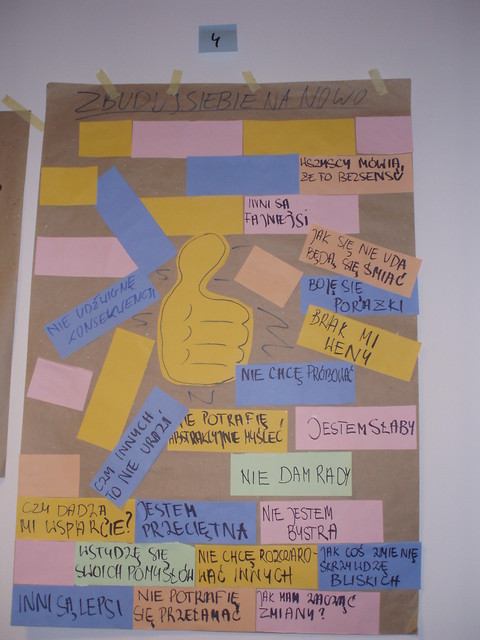 4
ZBUDUJ SIEBIE NA NOWO
WSZYSCY MÓWIĄ,
ŻE TO BEZSENSU
INNI SĄ
FAJNIEJSI
JAK SIĘ NIE UDA
BĘDĄ SIĘ ŚMIAĆ
NIE UDŹWIGNĘ
KONSEKWENCJI
BOJĘ SIĘ
PORAŻKI
BRAK MI
WENY
NIE CHCĘ PRÓBOWAĆ
CZY INNYCH
TO NIE URAZI
NIE POTRAFIĘ
ABSTRAKCYJNIE MYŚLEĆ
JESTEM SŁABY
NIE DAM RADY
CZY DADZĄ
MI WSPARCIE?
JESTEM
PRZECIĘTNA
NIE JESTEM
BYSTRA
WSTYDZĘ SIĘ
SWOICH POMYSŁÓW
NIE CHCĘ ROZCZARO-
WAĆ INNYCH
JAK COŚ ZMIENIĘ
SKRZYWDZĘ
BLISKICH
INNI SĄ LEPSI
NIE POTRAFIĘ
SIĘ PRZEŁAMAĆ
JAK MAM ZACZĄĆ
ZMIANY?